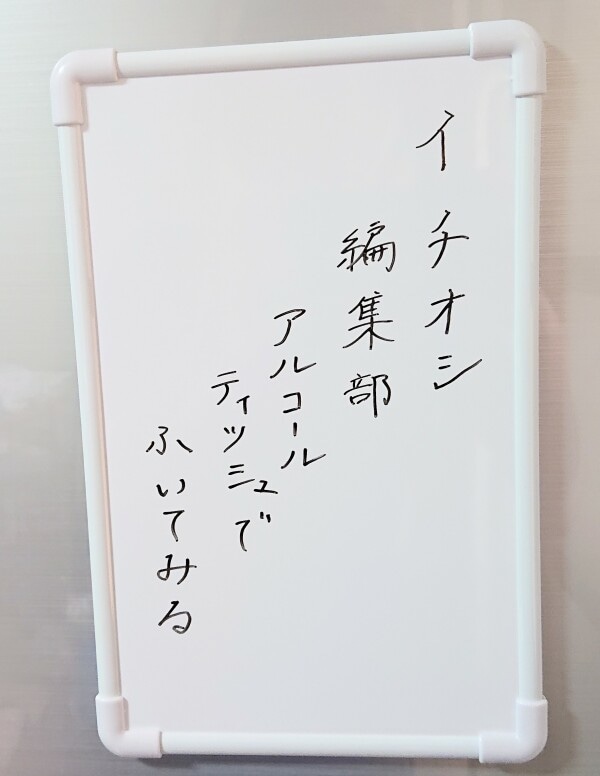 イチオシ
編集部
アルコール
ティッシュで
ふいてみる